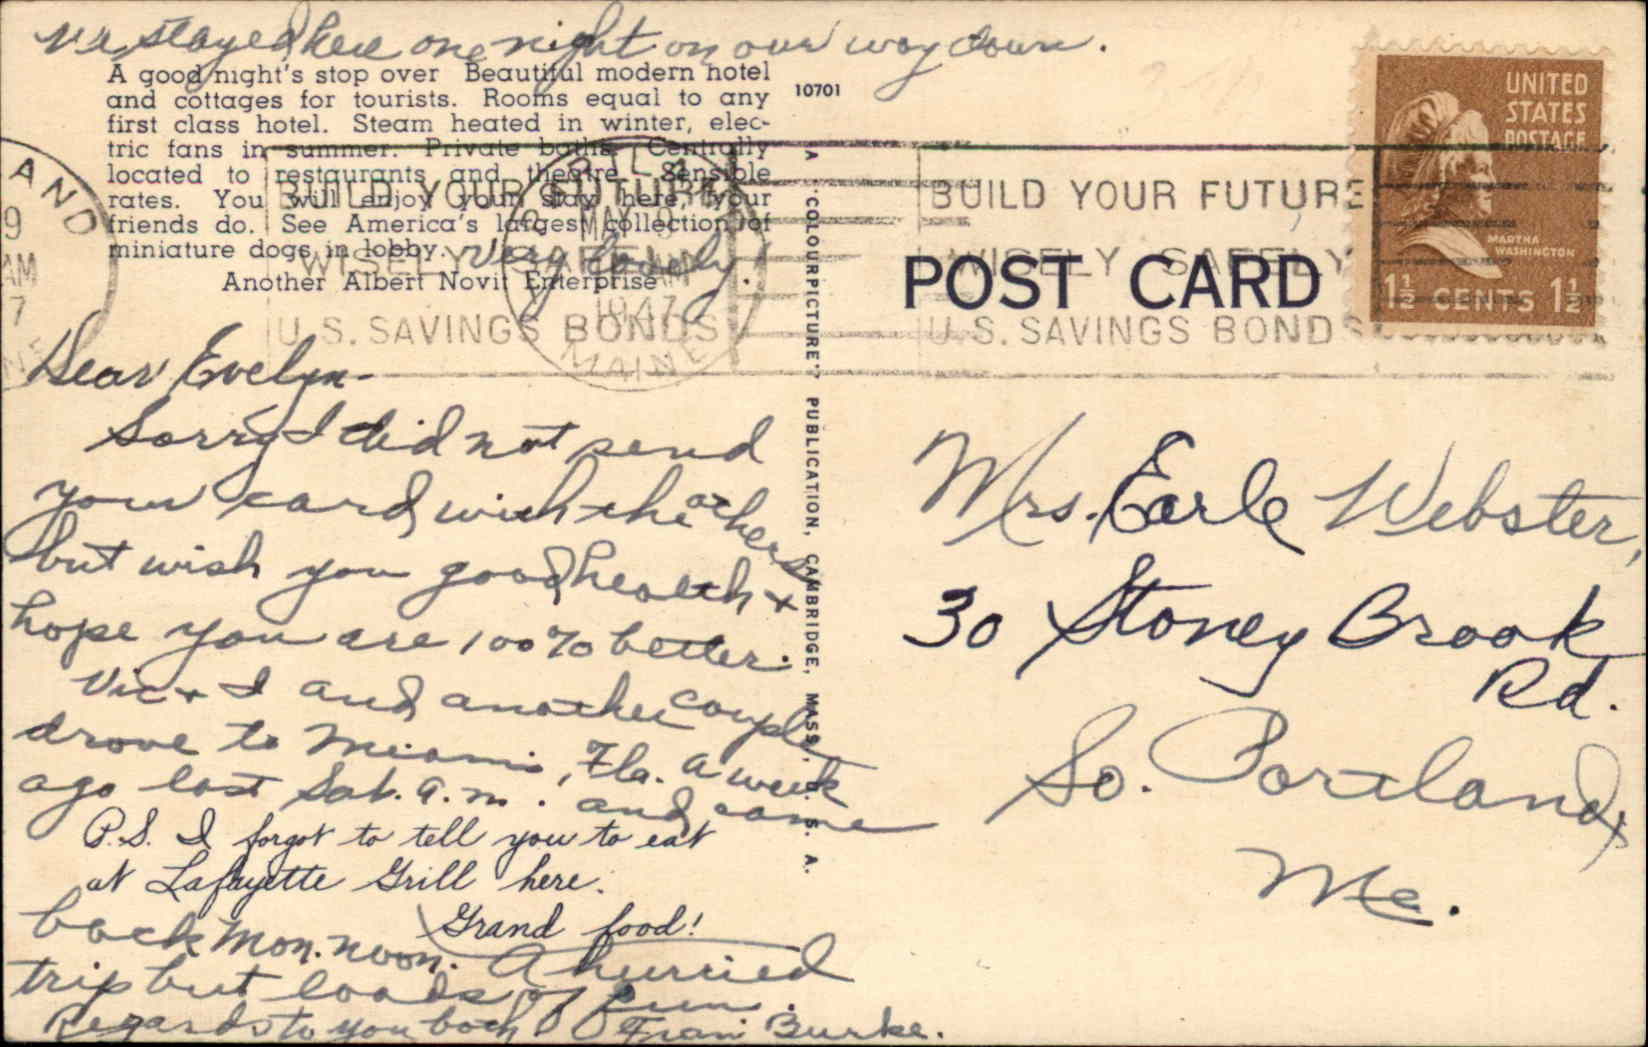 We stayed here one night on our way down.
A good night's stop over Beautiful modern hotel
and cottages for tourists. Rooms equal to any
first class hotel. Steam heated in winter, elec-
tric fans in summer. Private baths. Centrally
located to restaurants and theatre. Sensible
rates. You will enjoy your stay here, your
friends do. See America's largest collection of
miniature dogs in lobby. Very lovely.
Another Albert Novit Enterprise
10701
Dear Evelyn-
Sorry I did not send
your card with the others
but wish you good health +
hope you are 100% better.
Vic + I and another couple
drove to Miami, Fla. a week
ago last Sat. a.m. and came
P.S. I forgot to tell you to eat
at Lafayette Grill here.
Grand food!
back Mon. noon. A hurried
trip but loads of fun.
Regards to you both Fran Burke.
A "COLOURPICTURE" PUBLICATION, CAMBRIDGE, MASS., U. S. A.
AND
9
AM
7
MAY 9
AM
1947
MAINE
BUILD YOUR FUTURE
WISELY SAFELY
U.S. SAVINGS BONDS
BUILD YOUR FUTURE
WISELY SAFELY
U.S. SAVINGS BONDS
POST CARD
UNITED
STATES
POSTAGE
MARTHA
WASHINGTON
1½ CENTS 1½
Mrs. Earle Webster,
30 Stoney Brook
Rd.
So. Portland,
Me.